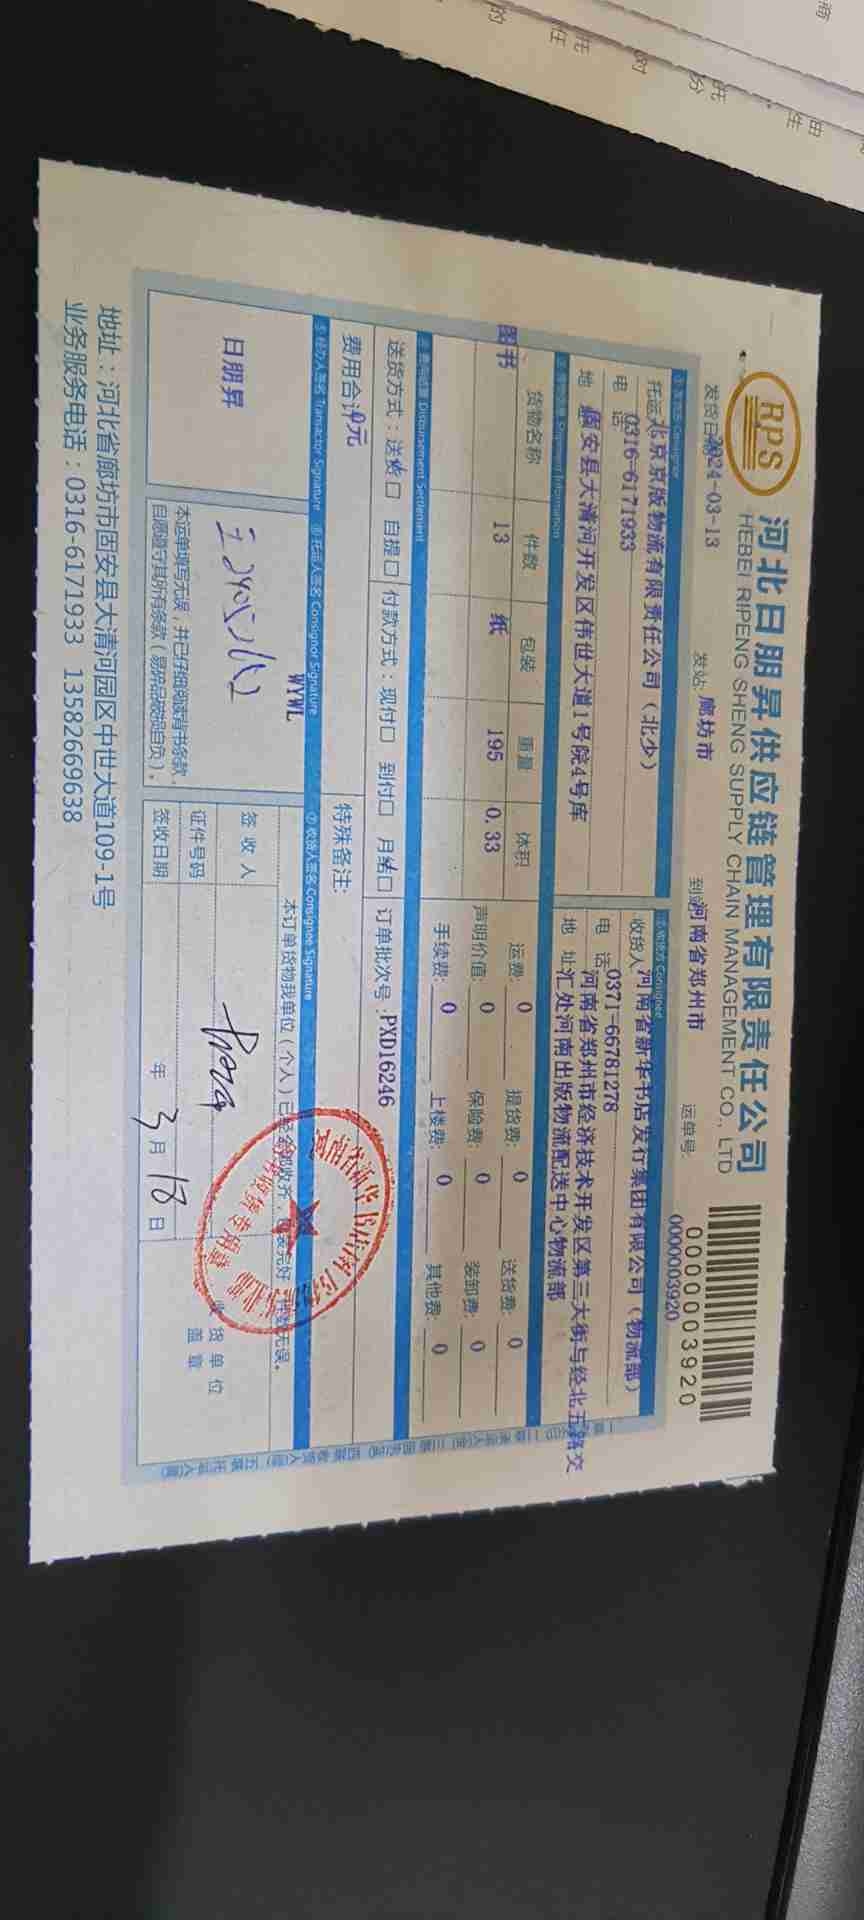 RPS
河北日朋昇供应链管理有限责任公司
HEBEI RIPENG SHENG SUPPLY CHAIN MANAGEMENT CO., LTD
0000003920
发货日期 2024-03-13 发站: 廊坊市 到站 河南省郑州市 运单号: 0000003920
托运人 北京京版物流有限责任公司（北少）
电 话 0316-6171933
地 固安县大清河开发区伟世大道1号院4号库
收货人 河南省新华书店发行集团有限公司（物流部）
电 话 0371-66781278
河南省郑州市经济技术开发区第三大街与经北五路交
地 址 汇处河南出版物流配送中心物流部
Shipment Information
货物名称 件数 包装 重量 体积
图书 13 纸 195 0.33
运费: 0 提货费: 0 送货费: 0
声明价值: 0 保险费: 0 装卸费: 0
手续费: 0 上楼费: 0 其他费: 0
Disbursement Settlement
送货方式：送货□ 自提□ 付款方式：现付□ 到付□ 月结□ 订单批次号: PXD16246
费用合计 0元 特殊备注:
⑤经办人签名 Transactor Signature ⑥托运人签名 Consignor Signature ⑦收货人签名 Consignee Signature
日朋昇
WYWL
本运单填写无误，并已仔细阅读背书条款，
自愿遵守其所有条款（易碎品破损自负）。
本订单货物我单位（个人）已经全部收齐，包装完好，件数无误。
签 收 人
证件号码
签收日期 年 3 月 18 日
收 货 单 位
盖 章
地址：河北省廊坊市固安县大清河园区中世大道109-1号
业务服务电话：0316-6171933 13582669638